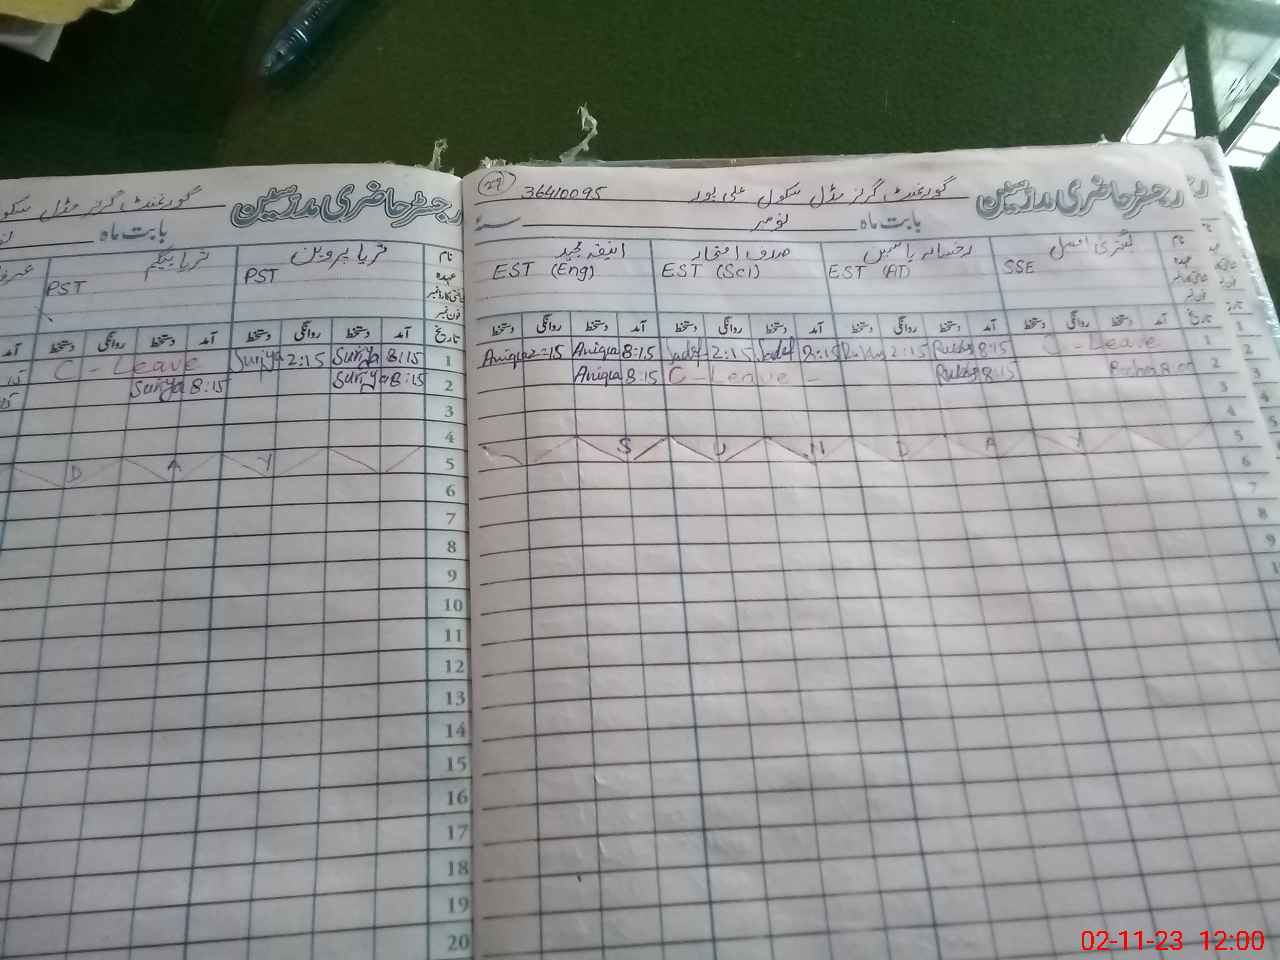 رجسٹر حاضری مدرسین گورنمنٹ گرلز مڈل سکول علی پور 36410095 29
بابت ماہ نومبر سنہ
نام صدف افتخار انیقہ مجید
عہدہ SSE EST (AT) EST (Sci) EST (Eng)
فون نمبر
تاریخ آمد دستخط روانگی دستخط آمد دستخط روانگی دستخط آمد دستخط روانگی دستخط آمد دستخط روانگی دستخط
1 C - Leave 8:15 2:15 8:15 Sadaf 2:15 Sadaf 8:15 Aniqa 2:15 Aniqa
2 8:15 C - Leave - 8:15 Aniqa
3
4
5 S U N D A Y
6
7
8
9
رجسٹر حاضری مدرسین گورنمنٹ گرلز مڈل سکول
بابت ماہ
نام ثریا پروین ثریا بیگم
عہدہ PST PST
فون نمبر
تاریخ آمد دستخط روانگی دستخط آمد دستخط روانگی دستخط آمد
1 8:15 Suriya 2:15 Suriya C - Leave
2 8:15 Suriya 8:15 Suriya
3
4
5 D A Y
6
7
8
9
10
11
12
13
14
15
16
17
18
19
20
02-11-23 12:00